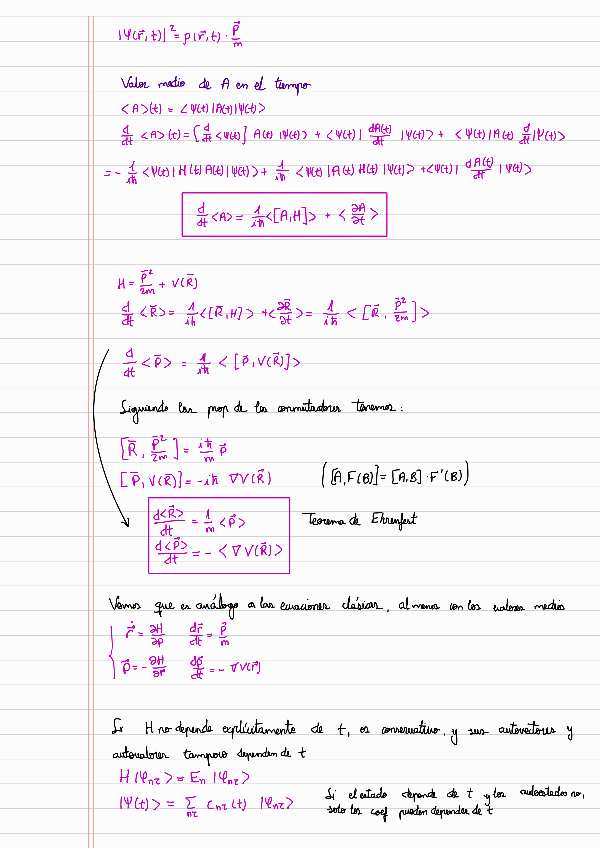 |Ψ(r⃗,t)|² = ρ(r⃗,t) · P⃗/m
Valor medio de A en el tiempo
<A>(t) = <Ψ(t)|A(t)|Ψ(t)>
d/dt <A>(t) = [d/dt <Ψ(t)|] A(t) |Ψ(t)> + <Ψ(t)| dA(t)/dt |Ψ(t)> + <Ψ(t)|A(t) d/dt |Ψ(t)>
= - 1/iħ <Ψ(t)|H(t)A(t)|Ψ(t)> + 1/iħ <Ψ(t)|A(t)H(t)|Ψ(t)> + <Ψ(t)| dA(t)/dt |Ψ(t)>
d/dt <A> = 1/iħ <[A,H]> + <∂A/∂t>
H = P⃗²/2m + V(R⃗)
d/dt <R⃗> = 1/iħ <[R⃗,H]> + <∂R⃗/∂t> = 1/iħ <[R⃗, P⃗²/2m]>
d/dt <P⃗> = 1/iħ <[P⃗,V(R⃗)]>
Siguiendo las prop de los conmutadores tenemos:
[R⃗, P⃗²/2m] = iħ/m P⃗
[P⃗,V(R⃗)] = -iħ ∇V(R⃗) ([A,F(B)] = [A,B]·F'(B))
d<R⃗>/dt = 1/m <P⃗> Teorema de Ehrenfest
d<P⃗>/dt = - <∇V(R⃗)>
Vemos que es análogo a las ecuaciones clásicas, al menos con los valores medio
ṙ⃗ = ∂H/∂p dr⃗/dt = p⃗/m
p⃗ = -∂H/∂r⃗ dp⃗/dt = -∇V(r⃗)
Si H no depende explícitamente de t, es conservativo, y sus autovectores y
autovalores tampoco dependen de t
H|φₙτ> = Eₙ|φₙτ>
|Ψ(t)> = Σₙτ cₙτ(t) |φₙτ>
Si el estado depende de t y los autoestados no,
solo los coef pueden depender de t